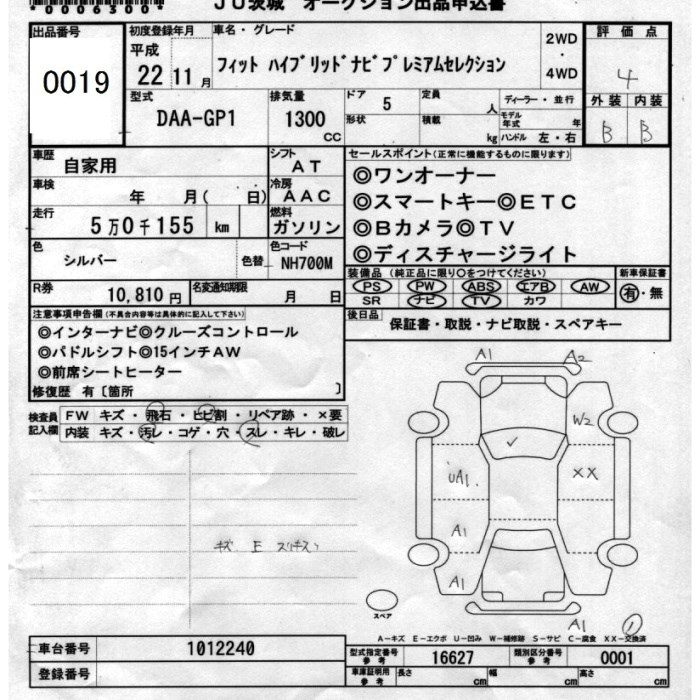 *0006300*
JU茨城 オークション出品申込書
出品番号
0019
初度登録年月
平成
22 11月
車名・グレード
フィット ハイブリッドナビプレミアムセレクション
2WD
・
4WD
評価点
4
外装 内装
B B
型式
DAA-GP1
排気量
1300
CC
ドア 5
形状
定員 人
積載 kg
ディーラー・並行
モデル年式 年
ハンドル 左・右
車歴 自家用
シフト AT
車検 年 月( 日)
冷房 AAC
走行 5万0千155 km
燃料 ガソリン
色 シルバー
色替
色コード NH700M
R券 10,810円
名変通知期限 月 日
セールスポイント(正常に機能するものに限ります)
◎ワンオーナー
◎スマートキー◎ETC
◎Bカメラ◎TV
◎ディスチャージライト
装備品(純正品に限り○をつけてください)
PS PW ABS エアB AW
SR ナビ TV カワ
新車保証書
有・無
後日品
保証書・取説・ナビ取説・スペアキー
注意事項申告欄(不具合内容等は具体的に記入して下さい)
◎インターナビ◎クルーズコントロール
◎パドルシフト◎15インチAW
◎前席シートヒーター
修復歴 有〔箇所 〕
検査員記入欄
FW キズ・飛石・ヒビ割・リペア跡・×要
内装 キズ・汚レ・コゲ・穴・スレ・キレ・破レ
キズ E
A1 A2
W2
UA1 XX
A1
A1
A1
1
スペア
A-キズ E-エクボ U-凹み W-補修跡 S-サビ C-腐食 XX-交換済
車台番号 1012240
登録番号
型式指定番号 参考 16627
類別区分番号 参考 0001
車庫証明用 参考 長さ cm 幅 cm 高さ cm